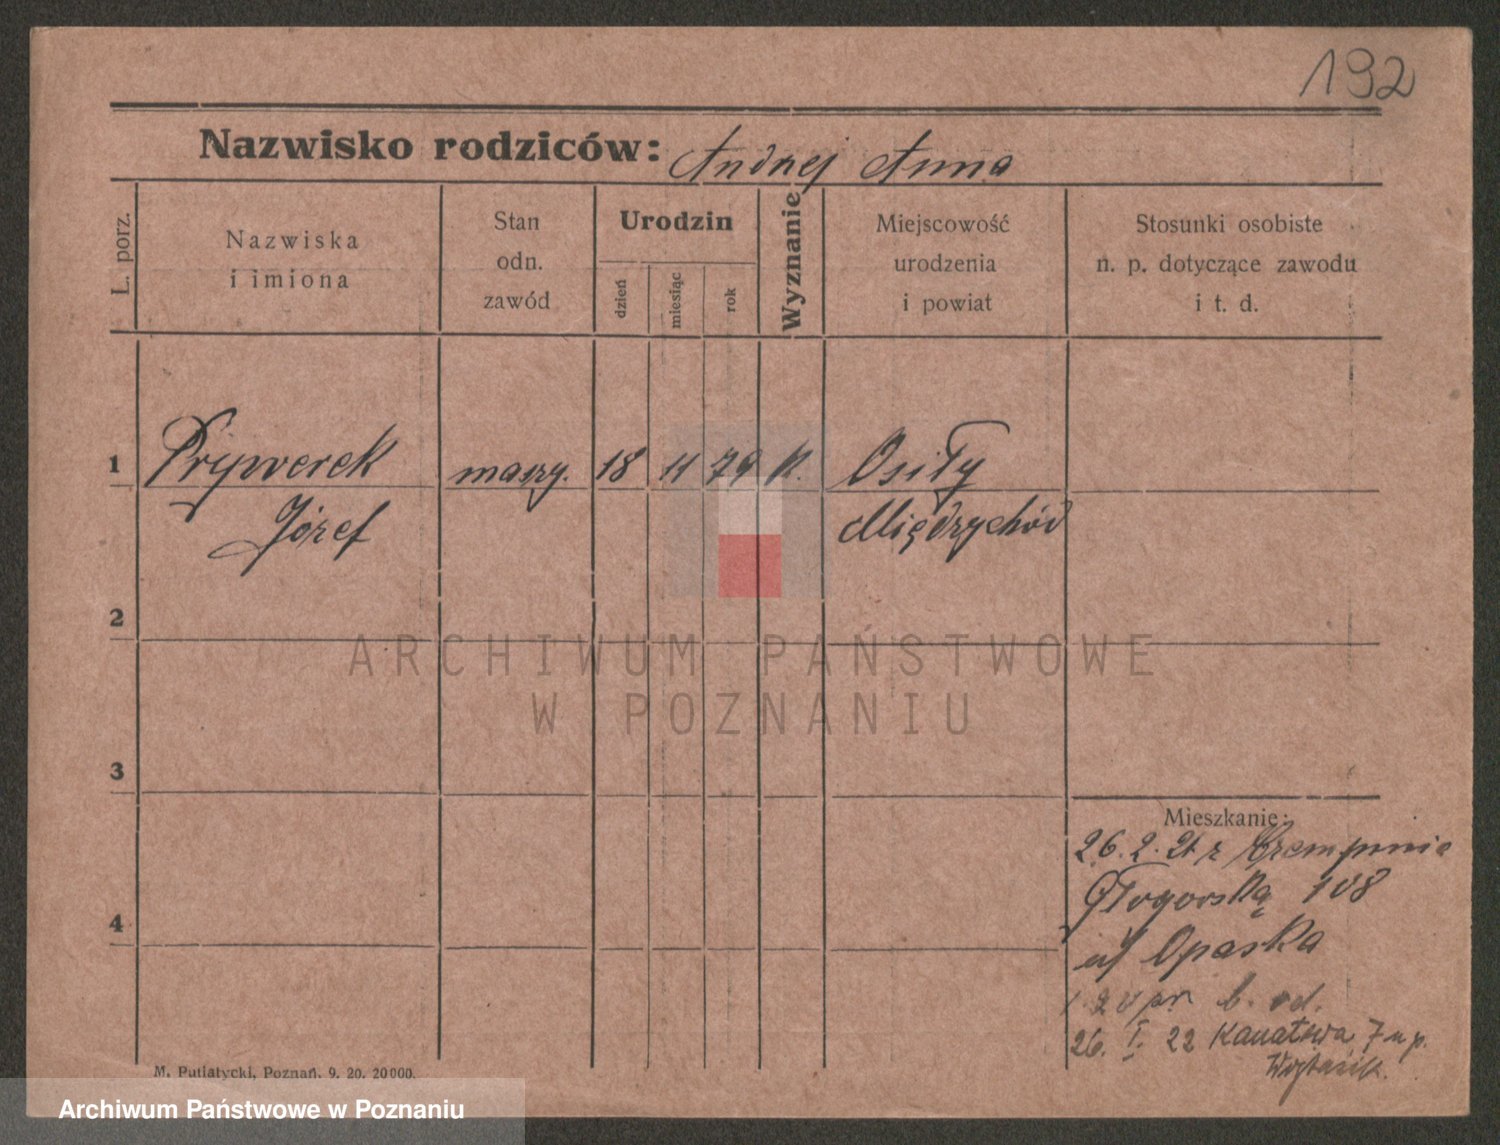 192
Nazwisko rodziców: Andrzej Anna
L. porz.
Nazwiska
i imiona
Stan
odn.
zawód
Urodzin
dzień
miesiąc
rok
Wyznanie
Miejscowość
urodzenia
i powiat
Stosunki osobiste
n. p. dotyczące zawodu
i t. d.
1 Prywerek maszy. 18 11 79 K. Osiły
Józef Międzychód
2
ARCHIWUM PAŃSTWOWE
W POZNANIU
3
4
Mieszkanie:
26. 2. 21 z
Głogorską 108
u/ Opaska
1 20 b. od.
26. I. 22 Kanałowa 7 u p.
Wojtasik.
M. Putiatycki, Poznań. 9. 20. 20000.
Archiwum Państwowe w Poznaniu